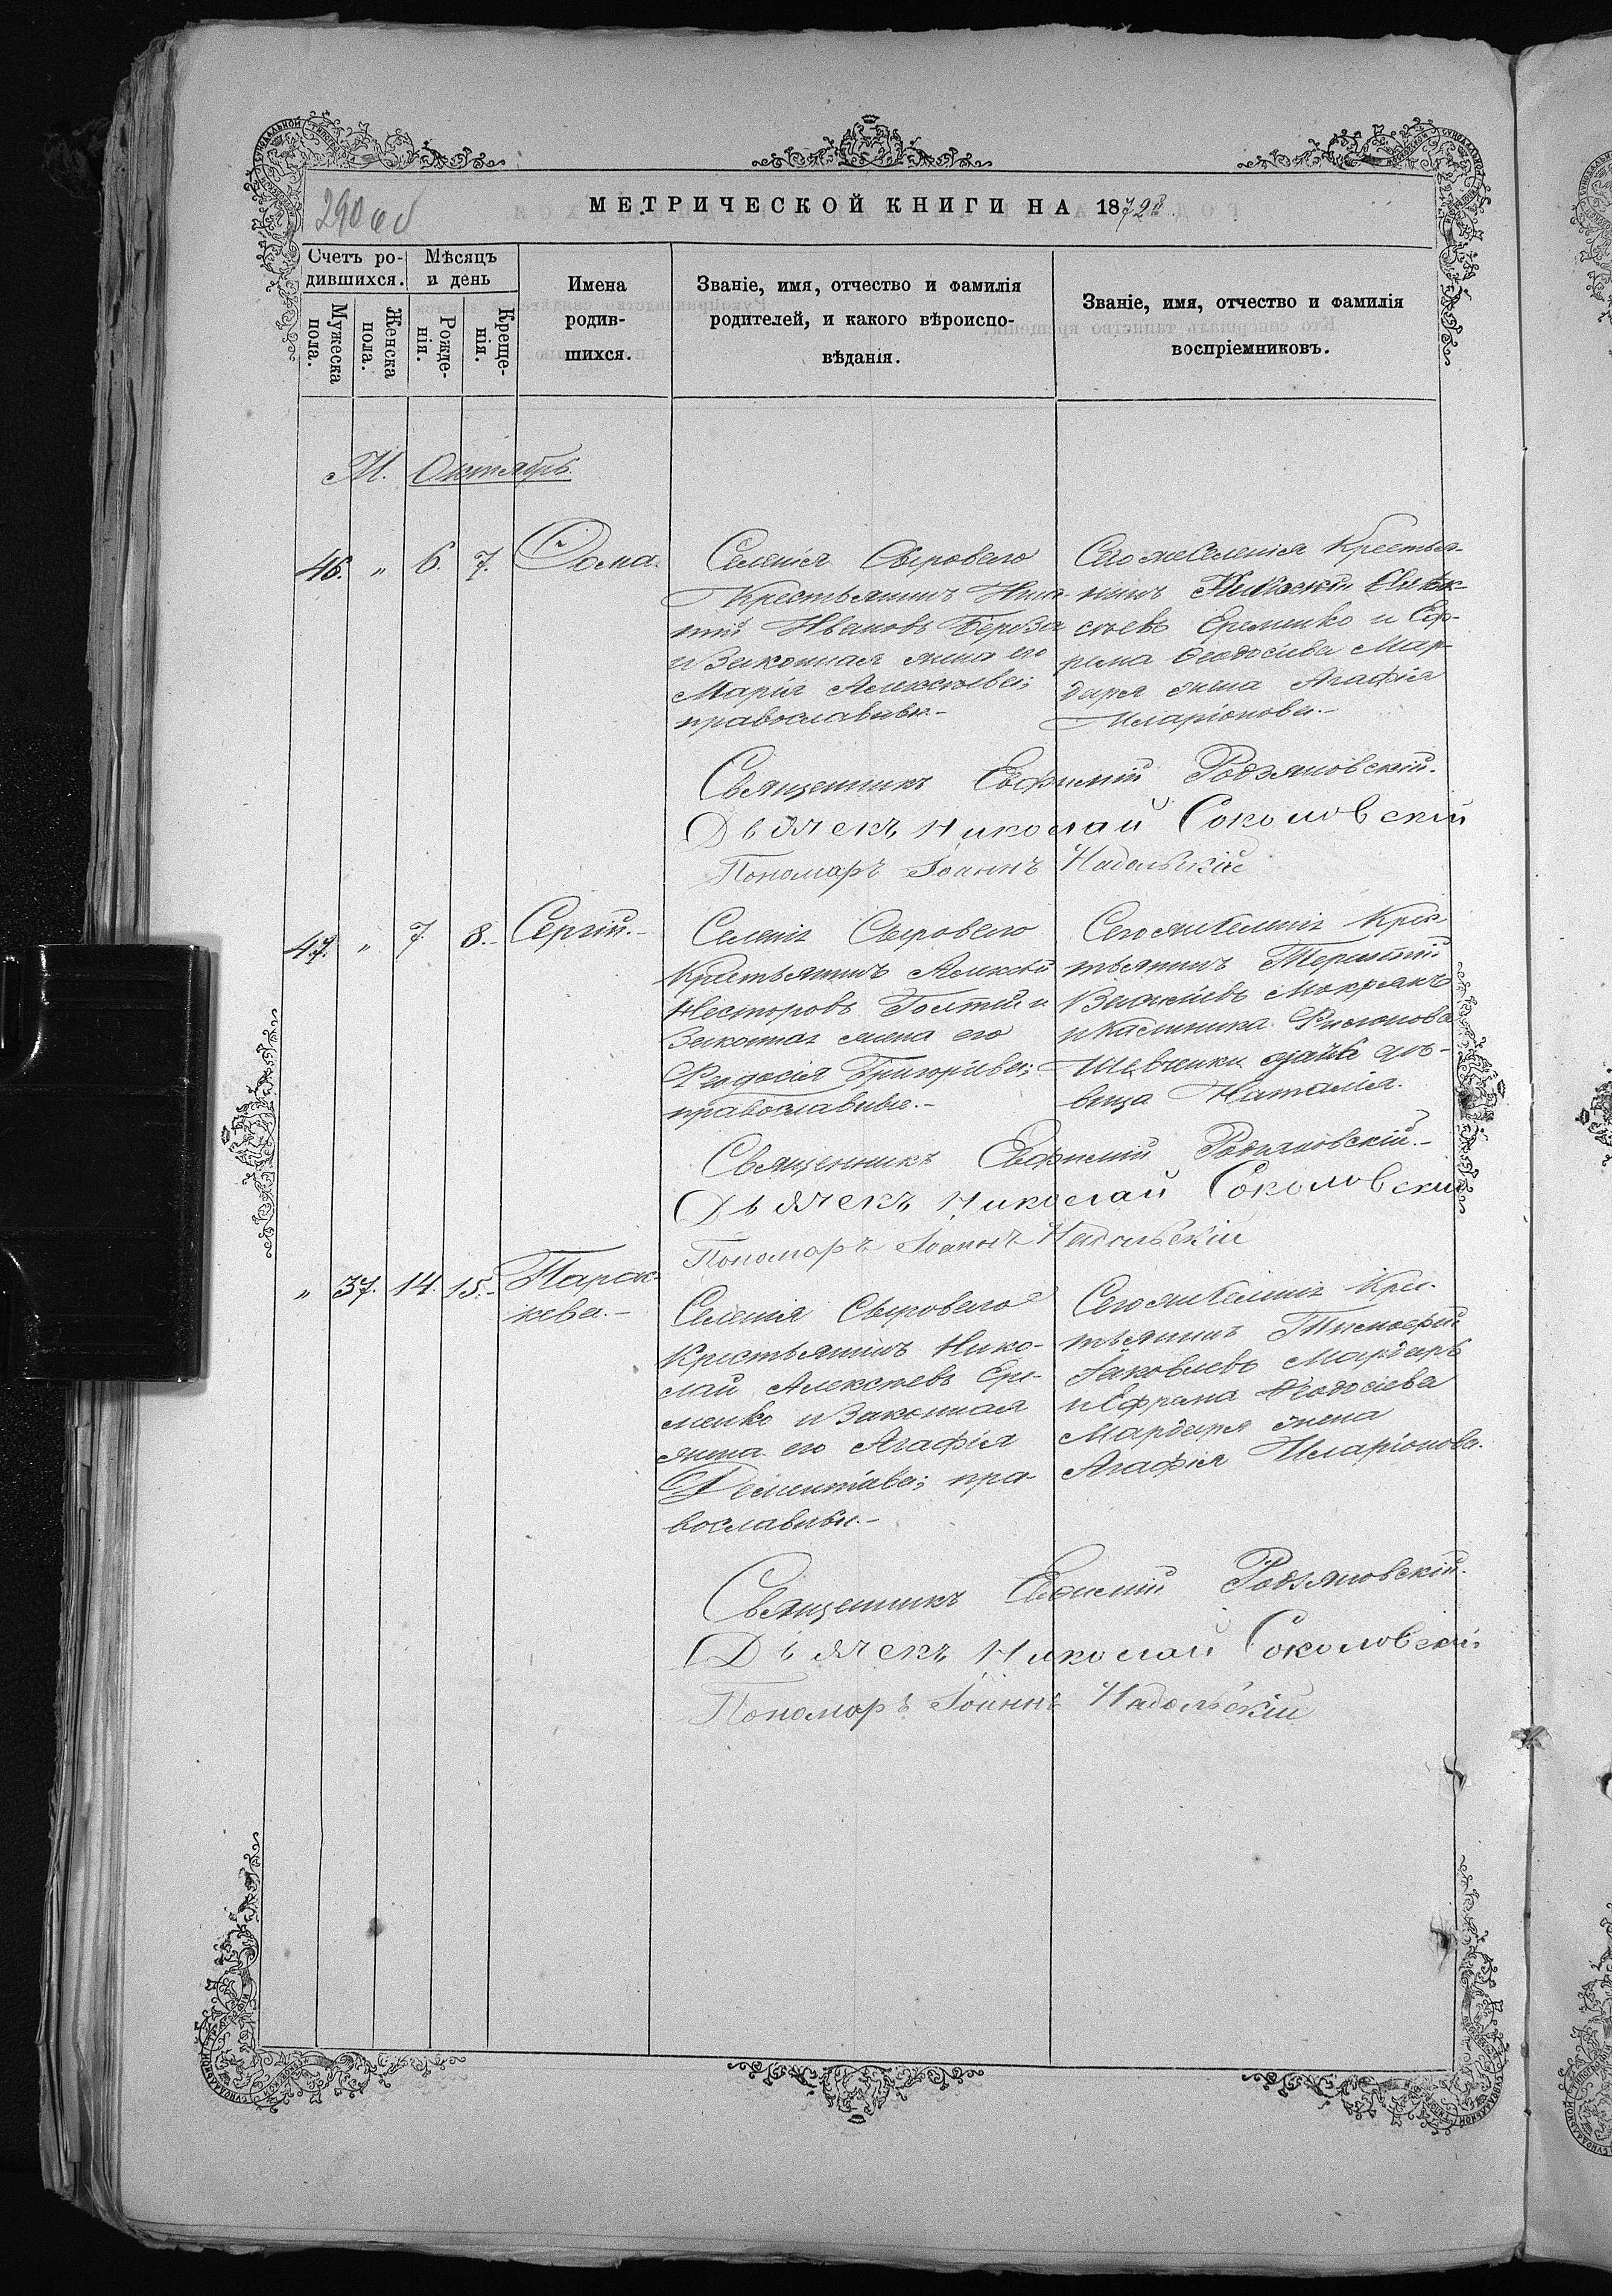 290 об
МЕТРИЧЕСКОЙ КНИГИ НА 1872й
Счетъ ро-
дившихся.
Мѣсяцъ
и день
Мужеска
пола.
Женска
пола.
Рожде-
нія.
Креще-
нія.
Имена
родив-
шихся.
Званіе, имя, отчество и фамилія
родителей, и какого вѣроиспо-
вѣданія.
Званіе, имя, отчество и фамилія
воспріемниковъ.
М. Октябрь.
46. „ 6. 7. Ѳома.
Селенія Сыроваго
Крестьянинъ
Ивановъ Береза
и Законная жена его
Марія Алексѣева;
православны.-
Сего же Селенія Крестья-
нинъ Николай Алек-
сѣевъ Еременко и Еф-
рема Ѳеодосіева Мар-
даря жена Агафія
Иларіонова.-
Священникъ Евфимій Родзяновскій.
Дьячекъ Николай Соколовскій
Пономарь Іоаннъ Надольскій
47. „ 7. 8.- Сергій.-
Селенія Сыроваго
Крестьянинъ Алексѣй
Несторовъ Голтій и
Законная жена его
Ѳеодосія Григоріева;
православны.-
Сего же Селенія Крес-
тьянинъ Терентій
Василіевъ Мокрякъ
и Калинника
Шевченка дочь дѣ-
вица Наталія.
Священникъ Евфимій Родзяновскій.-
Дьячекъ Николай Соколовскій
Пономарь Іоаннъ Надольскій
„ 37. 14. 15.- Парас-
кева.-
Селенія Сыроваго
Крестьянинъ Нико-
лай Алексѣевъ Ере-
менко и Законная
жена его Агафія
Дементіева; пра-
вославны.-
Сего же Селенія Крес-
тьянинъ Тимоѳей
Іаковлевъ Мардарь
и Ефрема Ѳеодосіева
Мардаря жена
Агафія Иларіонова.
Священникъ Евфимій Родзяновскій.
Дьячекъ Николай Соколовскій
Пономарь Іоаннъ Надольскій